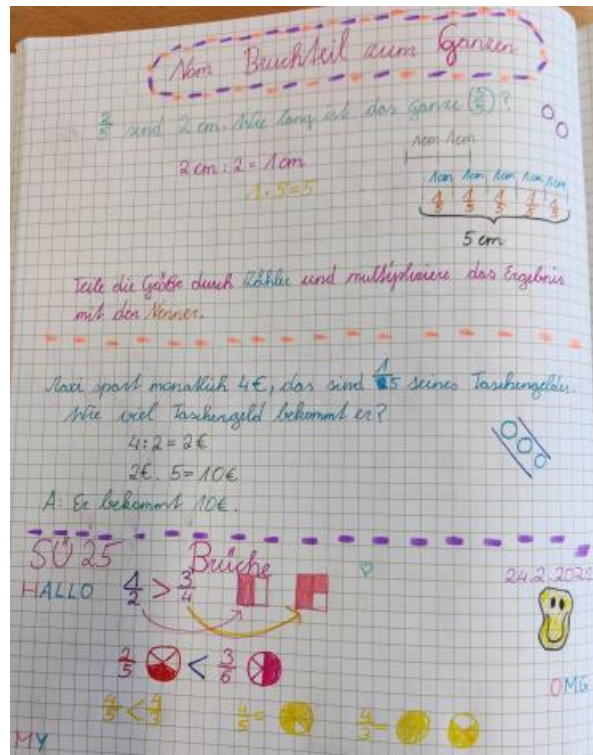 Vom Bruchteil zum Ganzen
2/5 sind 2 cm. Wie lang ist das Ganze (5/5)?
1cm 1cm
2 cm : 2 = 1 cm
1 · 5 = 5
1cm 1cm 1cm 1cm 1cm
1/5 1/5 1/5 1/5 1/5
5 cm
Teile die Größe durch Zähler und multipliziere das Ergebnis
mit den Nenner.
Maxi spart monatlich 4€, das sind 1/5 seines Taschengeldes.
Wie viel Taschengeld bekommt er?
4 : 2 = 2€
2€ · 5 = 10€
A: Er bekommt 10€.
SÜ 25 Brüche
HALLO 1/2 > 3/4
2/5 < 3/6
OMG
4/5 < 4/3 4/5 = 4/3 =
MY